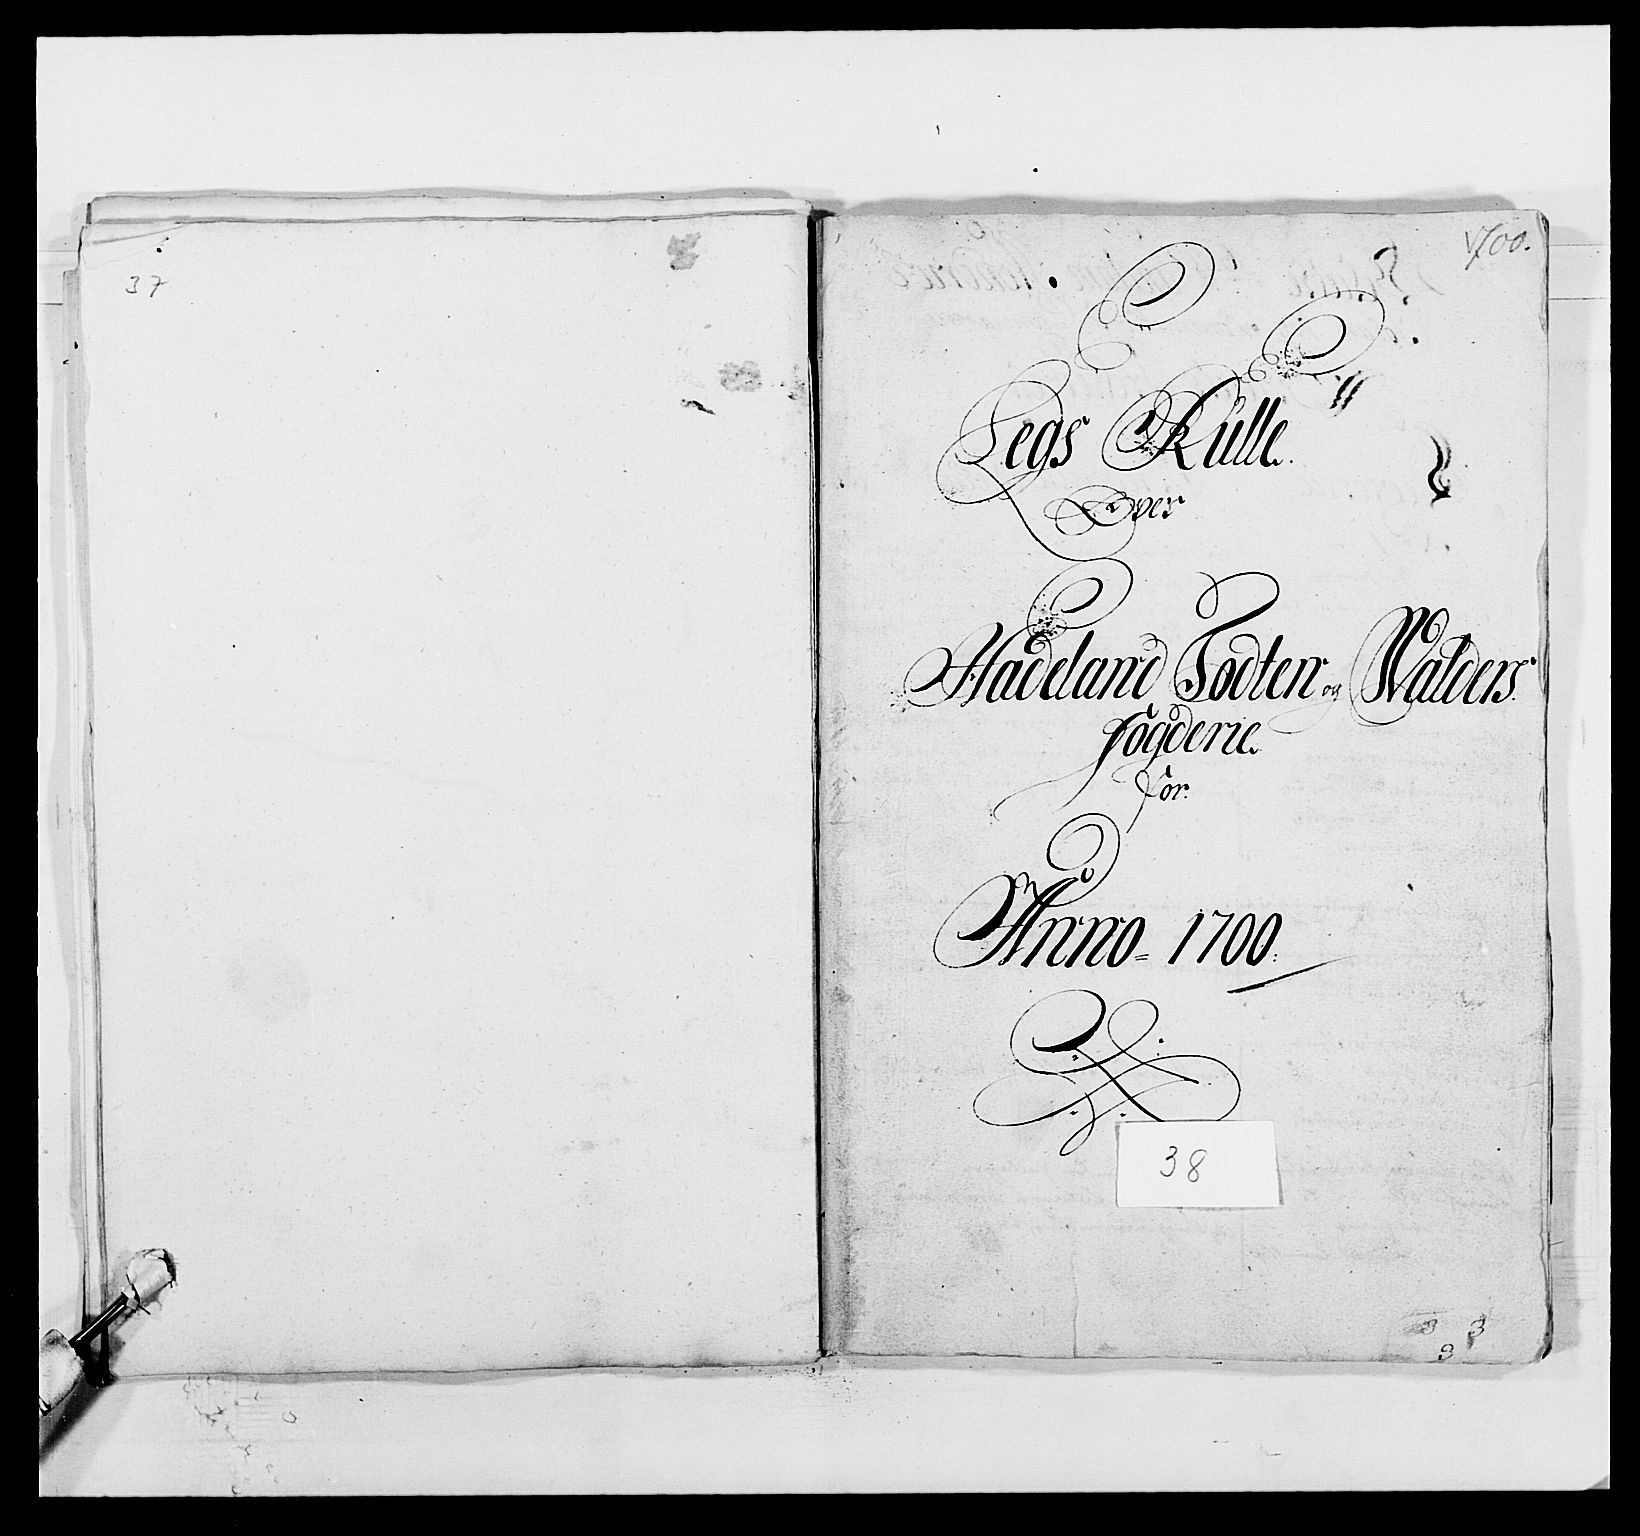 37
1700.
Legs Rulle.
Over
Hadeland Todten og Walders.
fogderie.
for.
Anno = 1700.
38
3 3
8